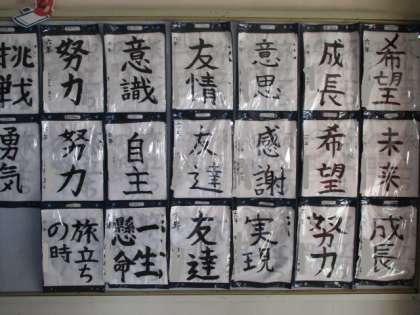 希望
成長
意思
友情
意識
努力
挑戦
未来
希望
感謝
友達
自主
努力
勇気
成長
努力
実現
友達
一生
懸命
旅立ち
の時